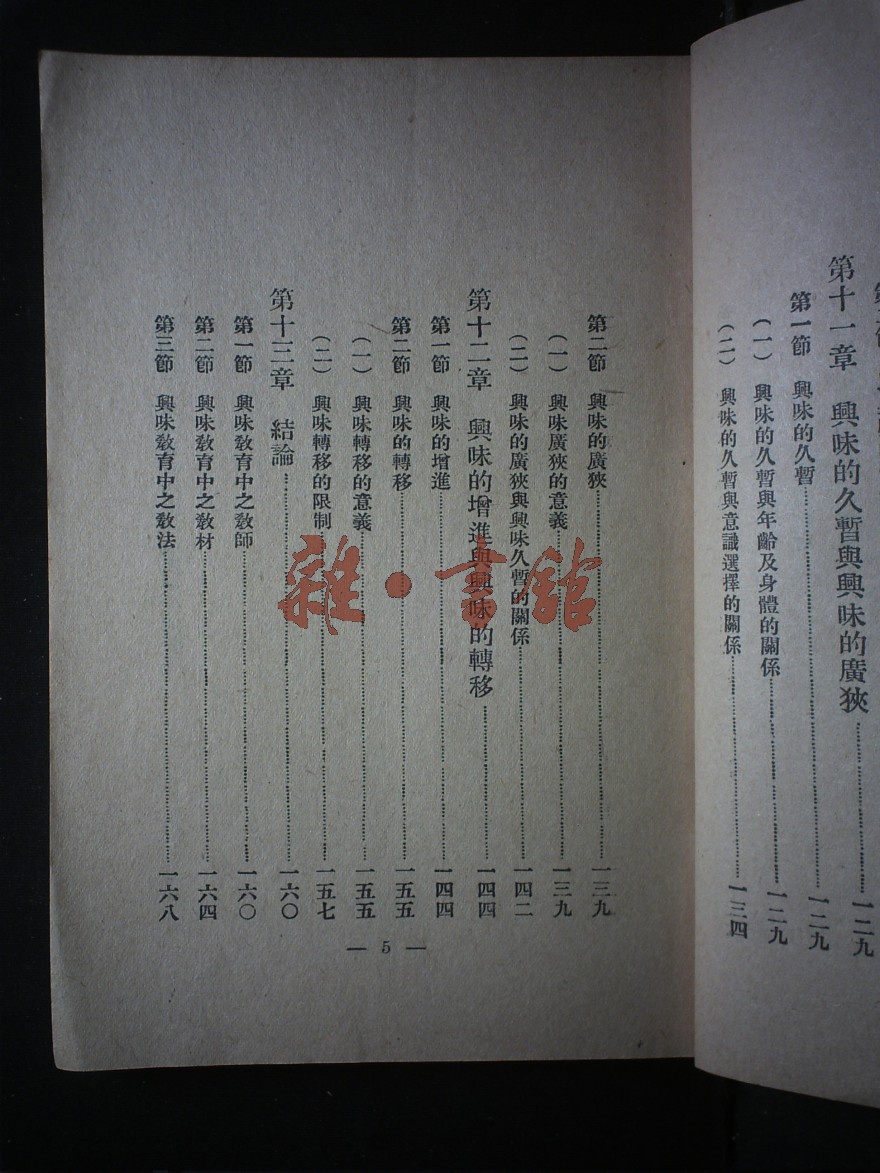 第十一章　興味的久暫與興味的廣狹……一二九
第一節　興味的久暫……一二九
（一）　興味的久暫與年齡及身體的關係……一二九
（二）　興味的久暫與意識選擇的關係……一三四
第二節　興味的廣狹……一三九
（一）　興味廣狹的意義……一三九
（二）　興味的廣狹與興味久暫的關係……一四二
第十二章　興味的增進與興味的轉移……一四四
第一節　興味的增進……一四四
第二節　興味的轉移……一五五
（一）　興味轉移的意義……一五五
（二）　興味轉移的限制……一五七
第十三章　結論……一六〇
第一節　興味教育中之教師……一六〇
第二節　興味教育中之教材……一六四
第三節　興味教育中之教法……一六八
— 5 —
雜·書館